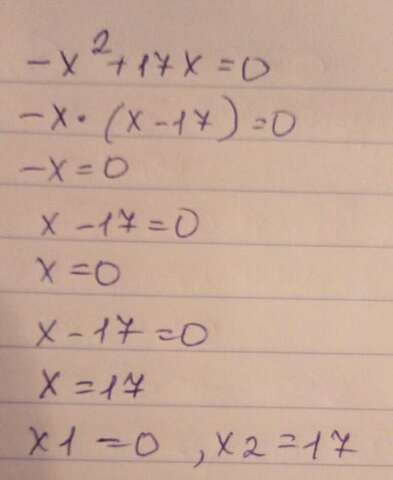 -x²+17x=0
-x·(x-17)=0
-x=0
x-17=0
x=0
x-17=0
x=17
x1=0, x2=17